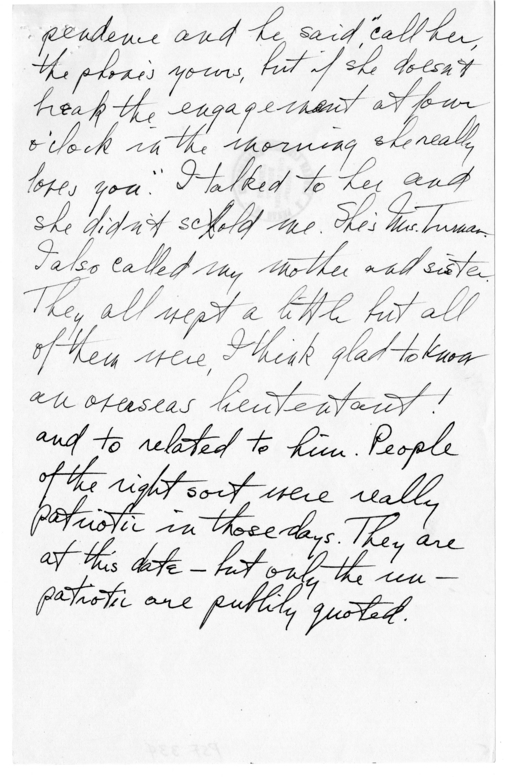 pendence and he said, "call her,
the phone's yours, but if she doesn't
break the engagement at four
o'clock in the morning she really
loves you." I talked to her and
she didn't schold me. She's Mrs. Truman.
I also called my mother and sister.
They all wept a little but all
of them were, I think glad to know
an overseas lieutentant!
and to related to him. People
of the right sort were really
patriotic in those days. They are
at this date – but only the un–
patriotic are publily quoted.